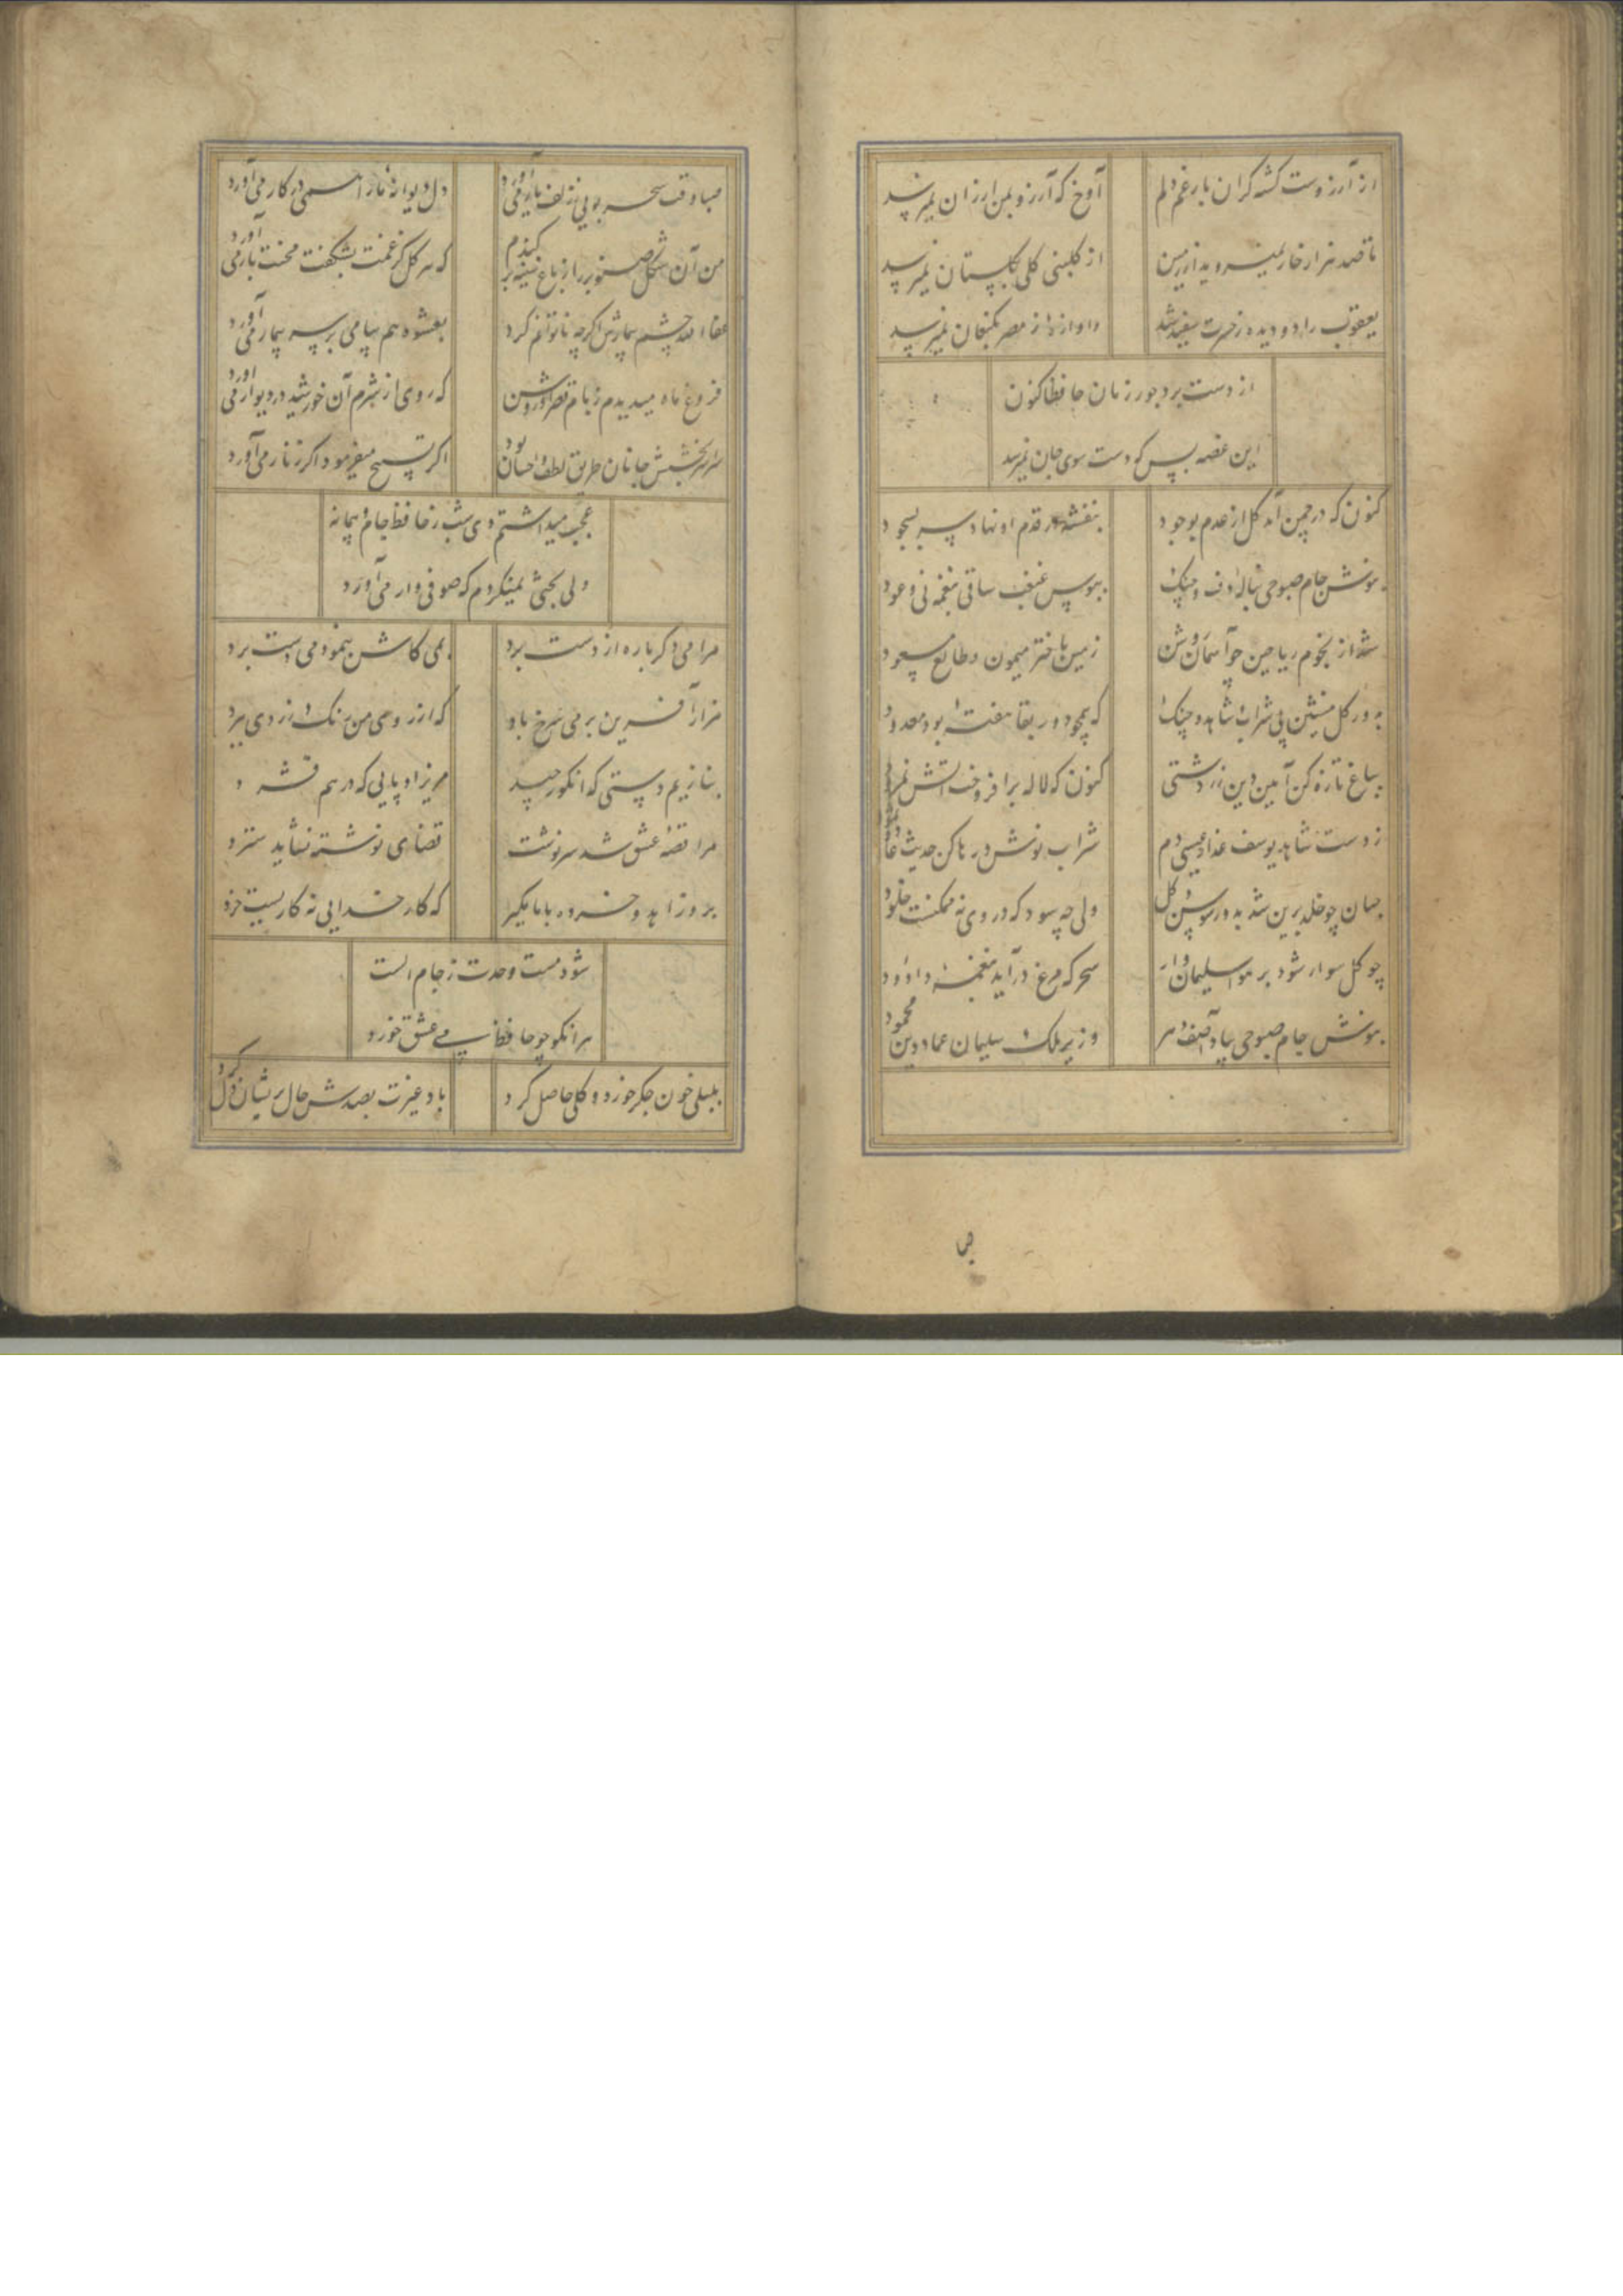 از آرزوست کشته کران بار غم دلم
آوخ که آرزو بمن ارزان نمیرسد
تا صد هزار خار نمیروید از زمین
از کلبنی کلی بکلستان نمیرسد
یعقوب را دو دیده ز حسرت سفید شد
و آوازهٔ ز مصر بکنعان نمیرسد
از دست برد جور زمان حافظا کنون
این غصه بس که دست سوی جان نمیرسد
کنون که در چمن آمد کل از عدم بوجود
بنفشه در قدم او نهاد سر بسجود
بنوش جام صبوحی بناله دف و چنک
ببوس غبغب ساقی بنغمه نی و عود
شد از نجوم ریاحین چو آسمان روشن
زمین باختر میمون و طالع مسعود
بدور کل منشین بی شراب و شاهد و چنک
که همچو دور بقا هفتهٔ بود معدود
بباغ تازه کن آیین دین زردشتی
کنون که لاله برافروخت آتش نمرود
ز دست شاهد یوسف عذار عیسی دم
شراب نوش و رها کن حدیث عاد و ثمود
جهان چو خلد برین شد بدور سوسن و کل
ولی چه سود که در وی نه ممکنست خلود
چو کل سوار شود بر هوا سلیمان وار
سحر که مرغ درآید بنغمهٔ داوود
بنوش جام صبوحی بیاد آصف عهر
وزیر ملک سلیمان عماد دین محمود
صبا وقت سحر بویی ز زلف یار می آورد
دل دیوانهٔ ما را در کار می آورد
من آن شکل صنوبر را ز باغ سینه برکندم
که هر کل کز غمت بشکفت محنت بار می آورد
عفا الله چشم بیمارش اکرچه ناتوانم کرد
بعشوه هم پیامی بر سر بیمار می آورد
فروغ ماه میدیدم ز بام قصر او روشن
که روی از شرم آن خورشید در دیوار می آورد
سراسر بخشش جانان طریق لطف و احسان بود
اکر تسبیح میفرمود اکر زنار می آورد
عجب میداشتم دی شب ز حافظ جام و پیمانه
ولی بحثی نمیکردم که صوفی وار می آورد
مرا می دکرباره از دست برد
بمن می دست برد
هزار آفرین بر می سرخ باد
که از روی من رنک زردی ببرد
بنازیم دستی که انکور چید
مریزاد پایی که در هم فشرد
مرا قصهٔ عشق شد سرنوشت
قضای نوشته نشاید سترد
برو زاهدا و خرده با ما مکیر
که کار خدایی نه کاریست خرد
شود مست وحدت ز جام الست
هر آنکو چو حافظ می عشق خورد
بلبلی خون جکر خورد و کلی حاصل کرد
باد غیرت بصدش حال پریشان دل کرد